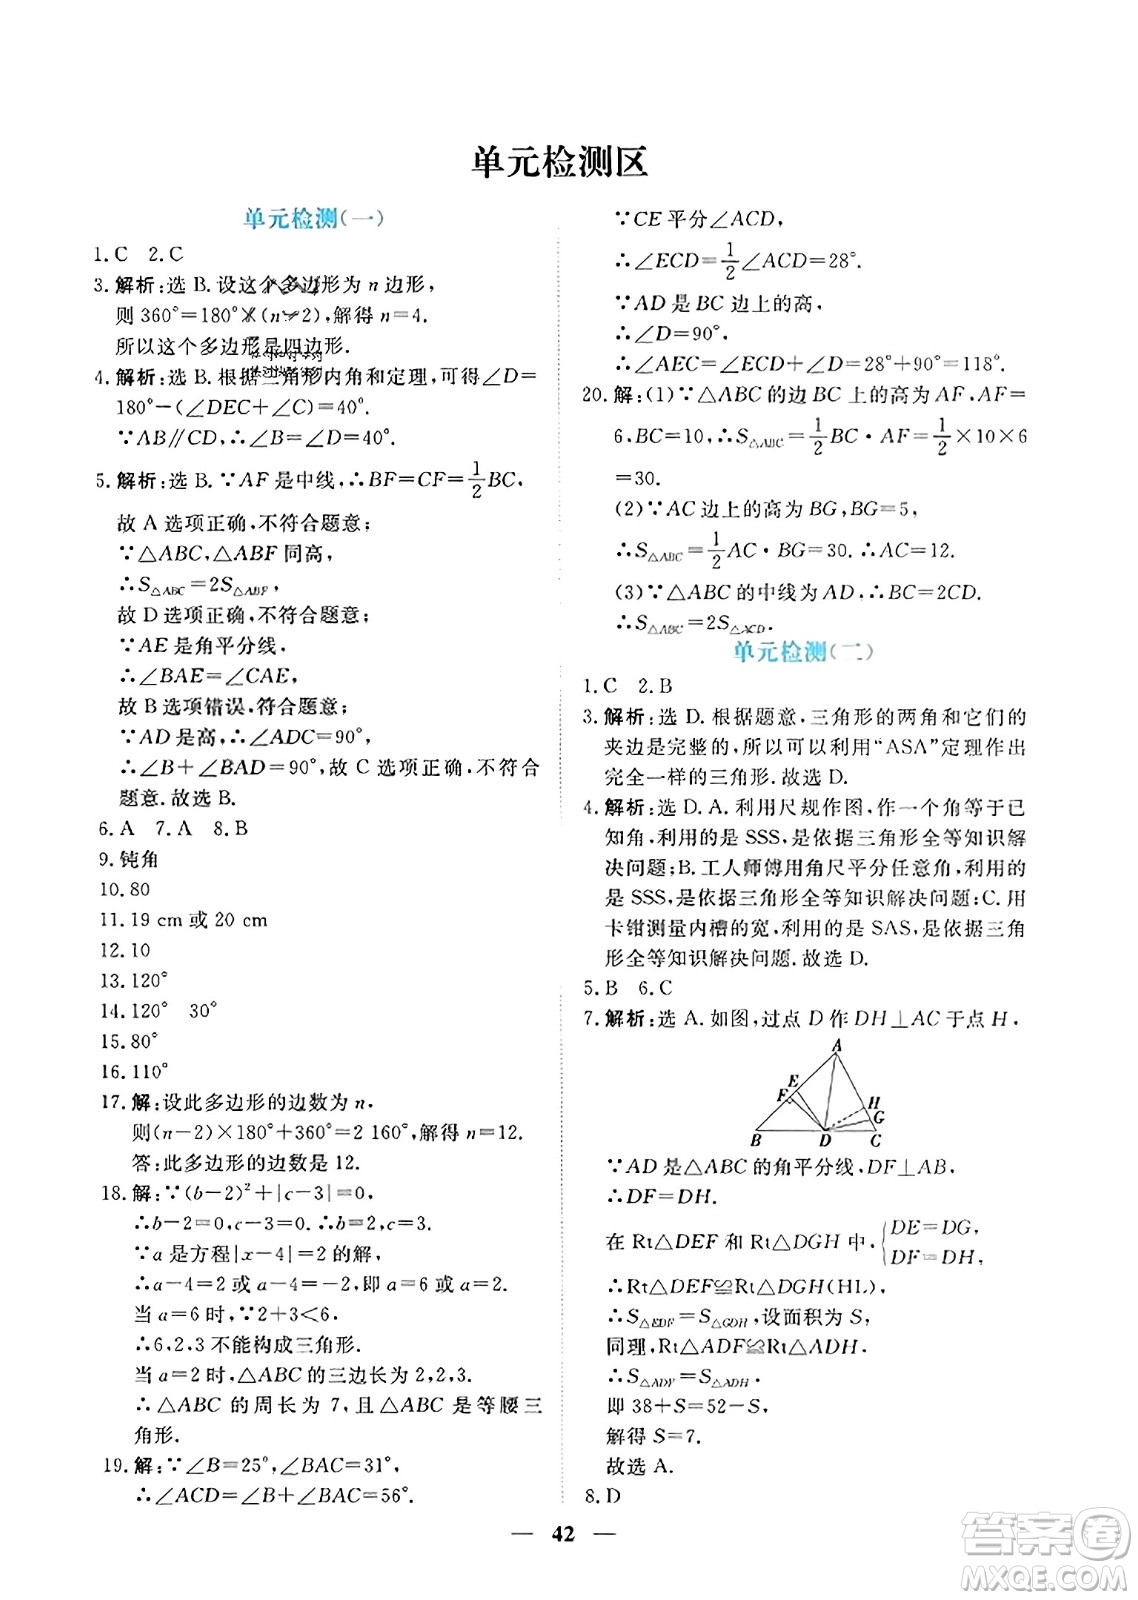 单元检测区
单元检测(一)
1.C 2.C
3.解析:选 B.设这个多边形为 n 边形,
则 360°=180°×(n-2),解得 n=4.
所以这个多边形是四边形.
4.解析:选 B.根据三角形内角和定理,可得∠D=
180°-(∠DEC+∠C)=40°.
∵AB∥CD,∴∠B=∠D=40°.
5.解析:选 B.∵AF 是中线,∴BF=CF=1/2BC,
故 A 选项正确,不符合题意;
∵△ABC,△ABF 同高,
∴S△ABC=2S△ABF,
故 D 选项正确,不符合题意;
∵AE 是角平分线,
∴∠BAE=∠CAE,
故 B 选项错误,符合题意;
∵AD 是高,∴∠ADC=90°,
∴∠B+∠BAD=90°,故 C 选项正确,不符合
题意.故选 B.
6.A 7.A 8.B
9.钝角
10.80
11.19 cm 或 20 cm
12.10
13.120°
14.120° 30°
15.80°
16.110°
17.解:设此多边形的边数为 n.
则(n-2)×180°+360°=2 160°,解得 n=12.
答:此多边形的边数是 12.
18.解:∵(b-2)²+|c-3|=0,
∴b-2=0,c-3=0.∴b=2,c=3.
∵a 是方程|x-4|=2 的解,
∴a-4=2 或 a-4=-2,即 a=6 或 a=2.
当 a=6 时,∵2+3<6.
∴6,2,3 不能构成三角形.
当 a=2 时,△ABC 的三边长为 2,2,3.
∴△ABC 的周长为 7,且△ABC 是等腰三
角形.
19.解:∵∠B=25°,∠BAC=31°,
∴∠ACD=∠B+∠BAC=56°.
∵CE 平分∠ACD,
∴∠ECD=1/2∠ACD=28°.
∵AD 是 BC 边上的高,
∴∠D=90°,
∴∠AEC=∠ECD+∠D=28°+90°=118°.
20.解:(1)∵△ABC 的边 BC 上的高为 AF,AF=
6,BC=10,∴S△ABC=1/2BC·AF=1/2×10×6
=30.
(2)∵AC 边上的高为 BG,BG=5,
∴S△ABC=1/2AC·BG=30.∴AC=12.
(3)∵△ABC 的中线为 AD,∴BC=2CD.
∴S△ABC=2S△ACD.
单元检测(二)
1.C 2.B
3.解析:选 D.根据题意,三角形的两角和它们的
夹边是完整的,所以可以利用“ASA”定理作出
完全一样的三角形.故选 D.
4.解析:选 D.A.利用尺规作图,作一个角等于已
知角,利用的是 SSS,是依据三角形全等知识解
决问题;B.工人师傅用角尺平分任意角,利用的
是 SSS,是依据三角形全等知识解决问题;C.用
卡钳测量内槽的宽,利用的是 SAS,是依据三角
形全等知识解决问题.故选 D.
5.B 6.C
7.解析:选 A.如图,过点 D 作 DH⊥AC 于点 H,
A
E
F
H
G
B D C
∵AD 是△ABC 的角平分线,DF⊥AB,
∴DF=DH.
在 Rt△DEF 和 Rt△DGH 中,{DE=DG,
DF=DH,
∴Rt△DEF≌Rt△DGH(HL).
∴S△EDF=S△GDH,设面积为 S,
同理,Rt△ADF≌Rt△ADH,
∴S△ADF=S△ADH,
即 38+S=52-S,
解得 S=7.
故选 A.
8.D
— 42 —
答案卷
MXQE.COM